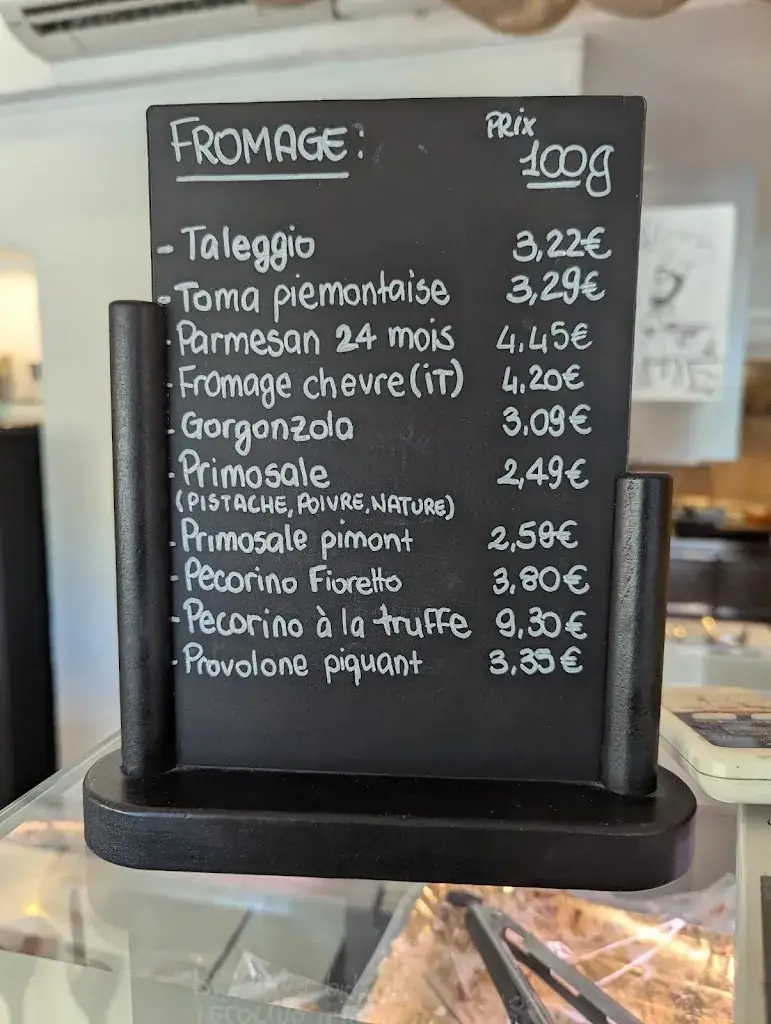 FROMAGE: PRIX
100g
- Taleggio 3,22€
- Toma piemontaise 3,29€
- Parmesan 24 mois 4,45€
- Fromage chevre (iT) 4,20€
- Gorgonzola 3,09€
- Primosale 2,49€
(PISTACHE, POIVRE, NATURE)
- Primosale pimont 2,59€
- Pecorino Fioretto 3,80€
- Pecorino à la truffe 9,30€
- Provolone piquant 3,35€